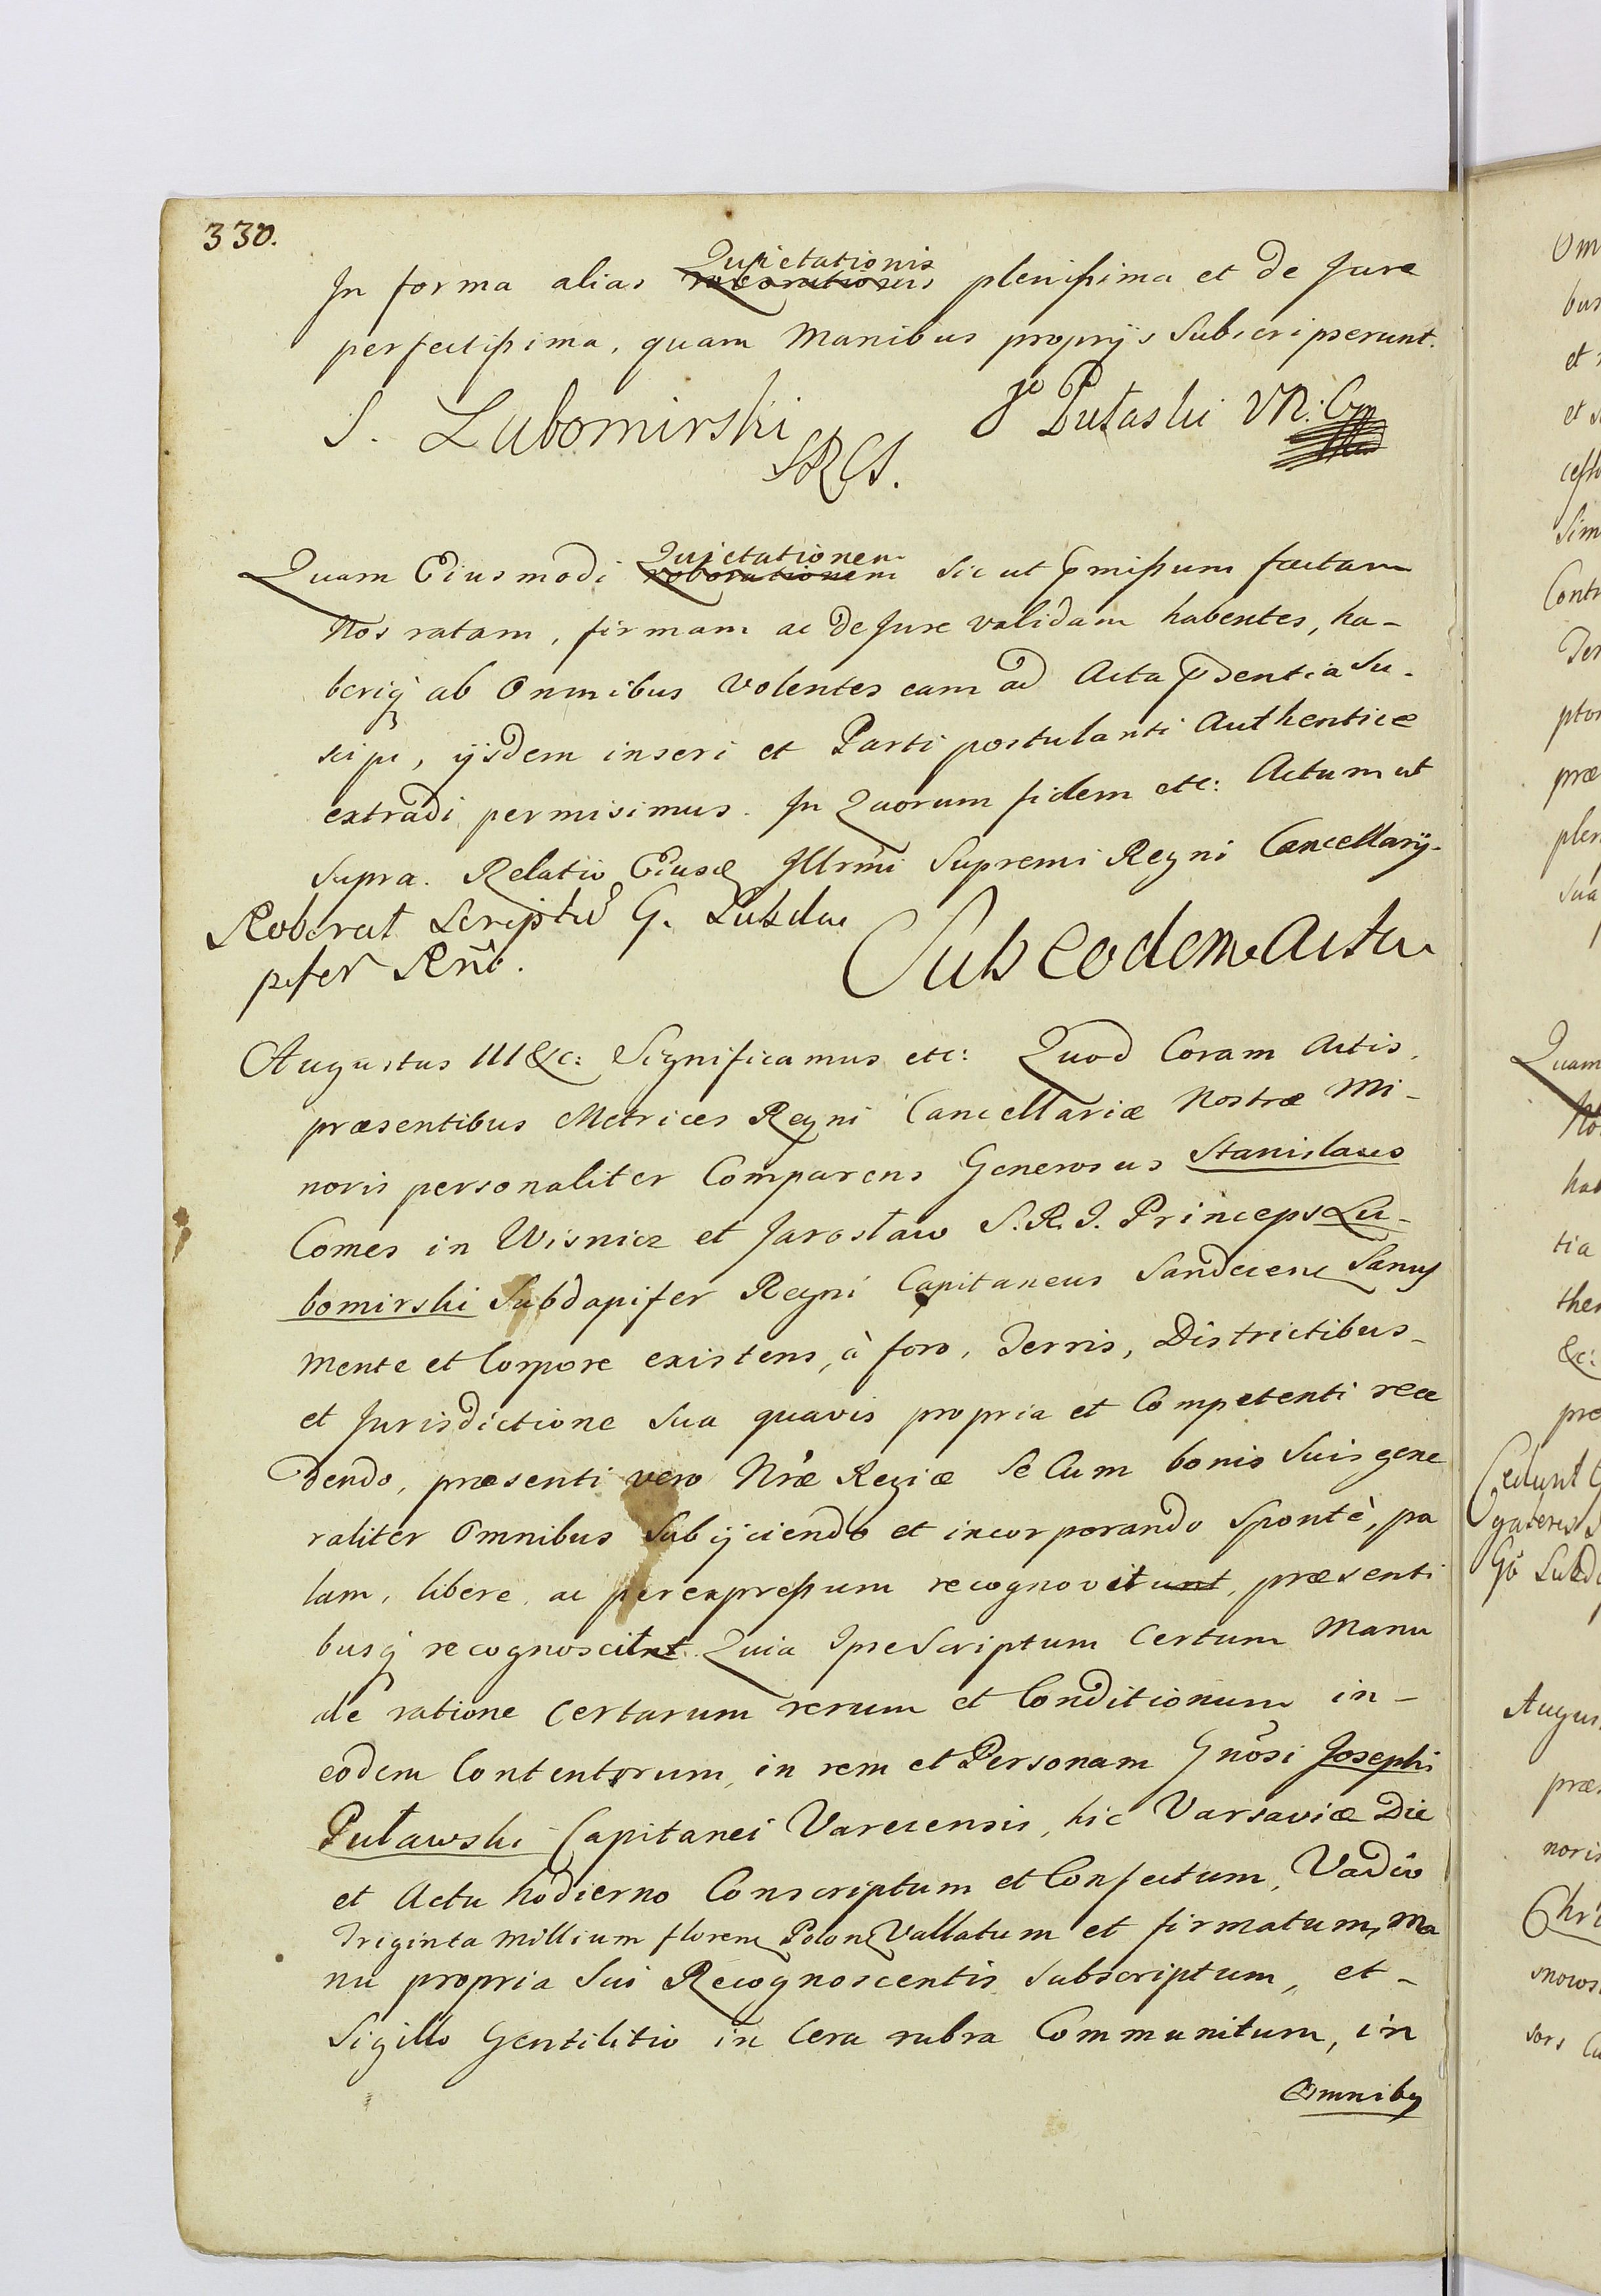 330.
In forma alias Quietationis roborationis plenissima et de Jure
perfectissima, quam Manibus proprijs Subscripserunt.
S. Lubomirski
SRCS.
Jo Pułaski
Quam Eiusmodi Quietationem roborationem sic ut pmissum factam
Nos ratam, firmam ac de Jure validam habentes, ha-
beriq ab Omnibus Volentes eam ad Acta pdentia Su-
scipi, ijsdem inseri et Parti postulanti Authentice
extradi permisimus. In Quorum fidem etc: Actum ut
supra. Relatio Eiusd Illrmi Supremi Regni Cancellarij.
Roborat Scriptū G. Subda
pifer Rñi.
Sub eodem Actu
Augustus III &c: Significamus etc: Quod Coram Actis
præsentibus Metrices Regni Cancellariæ Nostræ Mi-
noris personaliter Comparens Generosus Stanislaus
Comes in Wisnicz et Jarosław S. R. I. Princeps Lu-
bomirski Subdapifer Regni Capitaneus Sandecen Sanus
Mente et Corpore existens, à foro, Terris, Districtibus-
et Jurisdictione Sua quavis propria et Competenti rece
dendo, præsenti vero Nræ Regiæ Se Cum bonis Suis gene
raliter Omnibus Subijciendo et incorporando Spontè, pa
lam, libere, ac per expressum recognovitunt, præsenti
busq recognoscitnt. Quia Ipse Scriptum Certum Manu
ale ratione Certarum rerum et Conditionum in-
eodem Contentorum, in rem et Personam Gnōsi Josephi
Puławski Capitanei Varecensis, hic Varsaviæ Die
et Actu hodierno Conscriptum et Confectum, Vadio
Triginta Millium floren Polon Vallatum et firmatum, Ma
nu propria Sui Recognoscentis Subscriptum, et-
Sigillo Gentilitio in Cera rubra Communitum, in
Omnibus